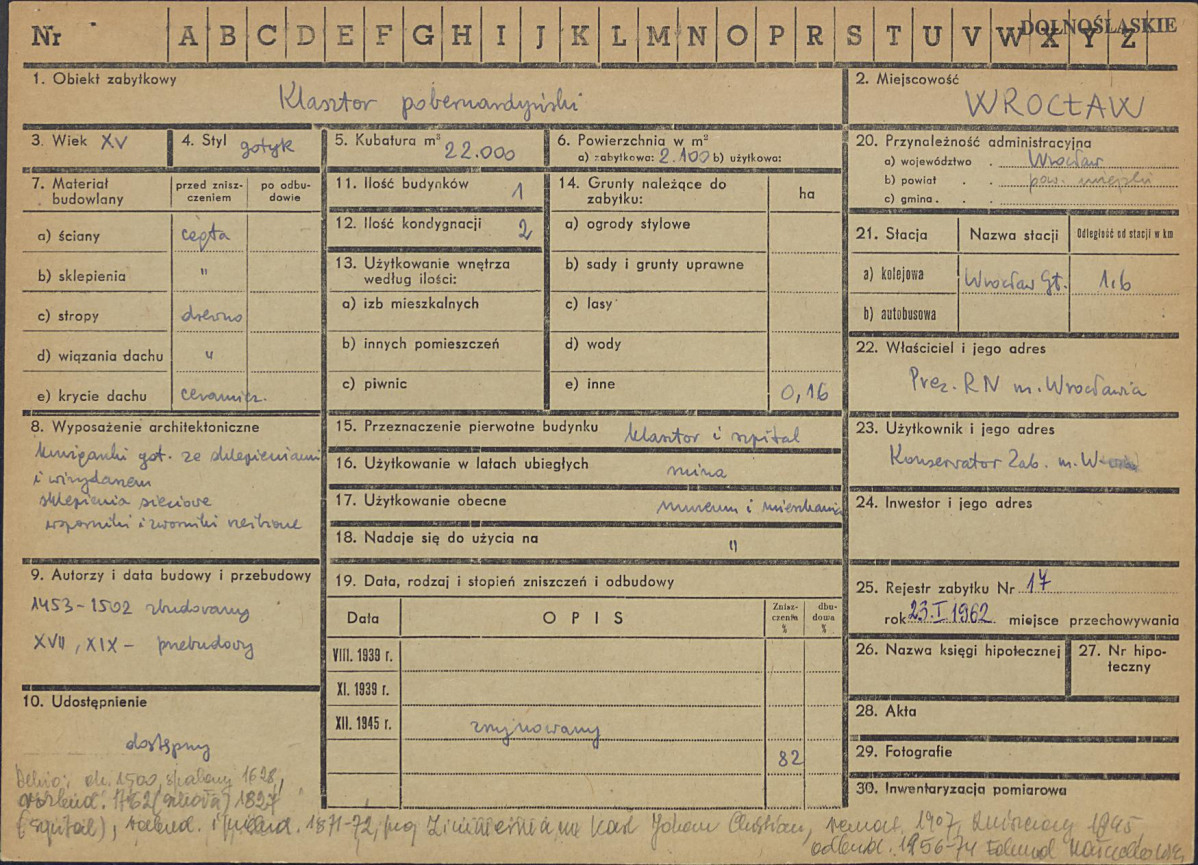 Nr A B C D E F G H I J K L M N O P R S T U V W X Y Z
DOLNOŚLĄSKIE
1. Obiekt zabytkowy
Klasztor pobernardyński
2. Miejscowość
WROCŁAW
3. Wiek XV
4. Styl gotyk
5. Kubatura m³ 22.000
6. Powierzchnia w m²
a) zabytkowa: 2.100 b) użytkowa:
7. Materiał budowlany
przed zniszczeniem
po odbudowie
a) ściany cegła
b) sklepienia "
c) stropy drewno
d) wiązania dachu "
e) krycie dachu ceramicz.
8. Wyposażenie architektoniczne
krużganki got. ze sklepieniami
i wirydarzem
sklepienia sieciowe
wsporniki i zworniki rzeźbione
9. Autorzy i data budowy i przebudowy
1453-1502 zbudowany
XVII, XIX - przebudowy
10. Udostępnienie
dostępny
11. Ilość budynków 1
12. Ilość kondygnacji 2
13. Użytkowanie wnętrza
według ilości:
a) izb mieszkalnych
b) innych pomieszczeń
c) piwnic
14. Grunty należące do
zabytku:
ha
a) ogrody stylowe
b) sady i grunty uprawne
c) lasy
d) wody
e) inne 0,16
15. Przeznaczenie pierwotne budynku klasztor i szpital
16. Użytkowanie w latach ubiegłych ruina
17. Użytkowanie obecne muzeum i mieszkania
18. Nadaje się do użycia na "
19. Data, rodzaj i stopień zniszczeń i odbudowy
Data
OPIS
Zniszczenia %
dbudowa %
VIII. 1939 r.
XI. 1939 r.
XII. 1945 r. zrujnowany
82
20. Przynależność administracyjna
a) województwo . Wrocław
b) powiat . . pow. miejski
c) gmina . .
21. Stacja
Nazwa stacji
Odległość od stacji w km
a) kolejowa Wrocław Gł. 1.6
b) autobusowa
22. Właściciel i jego adres
Prez. RN m. Wrocławia
23. Użytkownik i jego adres
Konserwator Zab. m.
24. Inwestor i jego adres
25. Rejestr zabytku Nr 17
rok 23.I.1962 miejsce przechowywania
26. Nazwa księgi hipotecznej
27. Nr hipoteczny
28. Akta
29. Fotografie
30. Inwentaryzacja pomiarowa
Dehio: ok. 1500, spalony 1628,
1762 (szkoła) 1897
(szpital), 1871-72, Karl Johann Christian, remont 1907, zniszczony 1945
odbud. 1956-74 Edmund